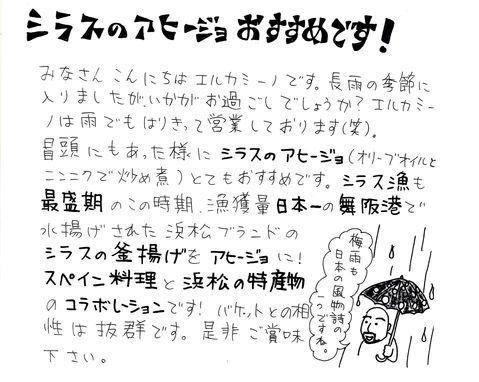 シラスのアヒージョおすすめです!
みなさんこんにちはエルカミーノです。長雨の季節に
入りましたが、いかがお過ごしでしょうか?エルカミー
ノは雨でもはりきって営業しております(笑)。
冒頭にもあった様にシラスのアヒージョ(オリーブオイルと
ニンニクで炒め煮)とてもおすすめです。シラス漁も
最盛期のこの時期、漁獲量日本一の舞阪港で
水揚げされた浜松ブランドの
シラスの釜揚げをアヒージョに!
スペイン料理と浜松の特産物
のコラボレーションです!バケットとの相
性は抜群です。是非ご賞味
下さい。
梅雨も
日本の風物詩の
一つですね。